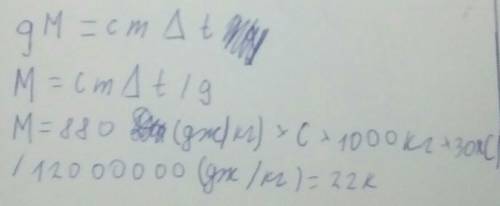 gM = cm Δ t
M = cm Δ t / g
M = 880 (дж/кг) × С × 1000 кг × 30 × С /
/ 12000000 (дж/кг) = 22к